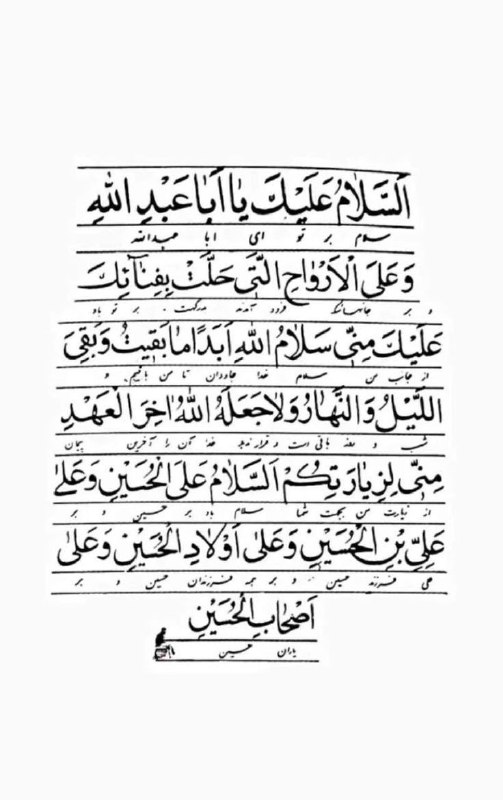 اَلسَّلامُ عَلَيْكَ يا اَبا عَبْدِ اللهِ
سلام بر تو ای ابا عبدالله
وَ عَلَى الْاَرْواحِ الَّتى حَلَّتْ بِفِنآئِكَ
و بر جانهائیکه فرود آمدند بدرگهت . بر تو باد
عَلَيْكَ مِنّى سَلامُ اللهِ اَبَدًا ما بَقيتُ وَ بَقِىَ
از جانب من سلام خدا جاودان تا من باقیم و
اللَّيْلُ وَ النَّهارُ وَلا جَعَلَهُ اللهُ اخِرَ الْعَهْدِ
شب و روز باقی است و قرار ندهد خدا آن را آخرین پیمان
مِنّى لِزِيارَتِكُمْ اَلسَّلامُ عَلَى الْحُسَيْنِ وَ عَلى
از زیارت من بجهت شما سلام باد بر حسین و بر
عَلِىِّ بْنِ الْحُسَيْنِ وَ عَلى اَوْلادِ الْحُسَيْنِ وَ عَلى
علی فرزند حسین و بر همه فرزندان حسین و بر
اَصْحابِ الْحُسَيْنِ
یاران حسین